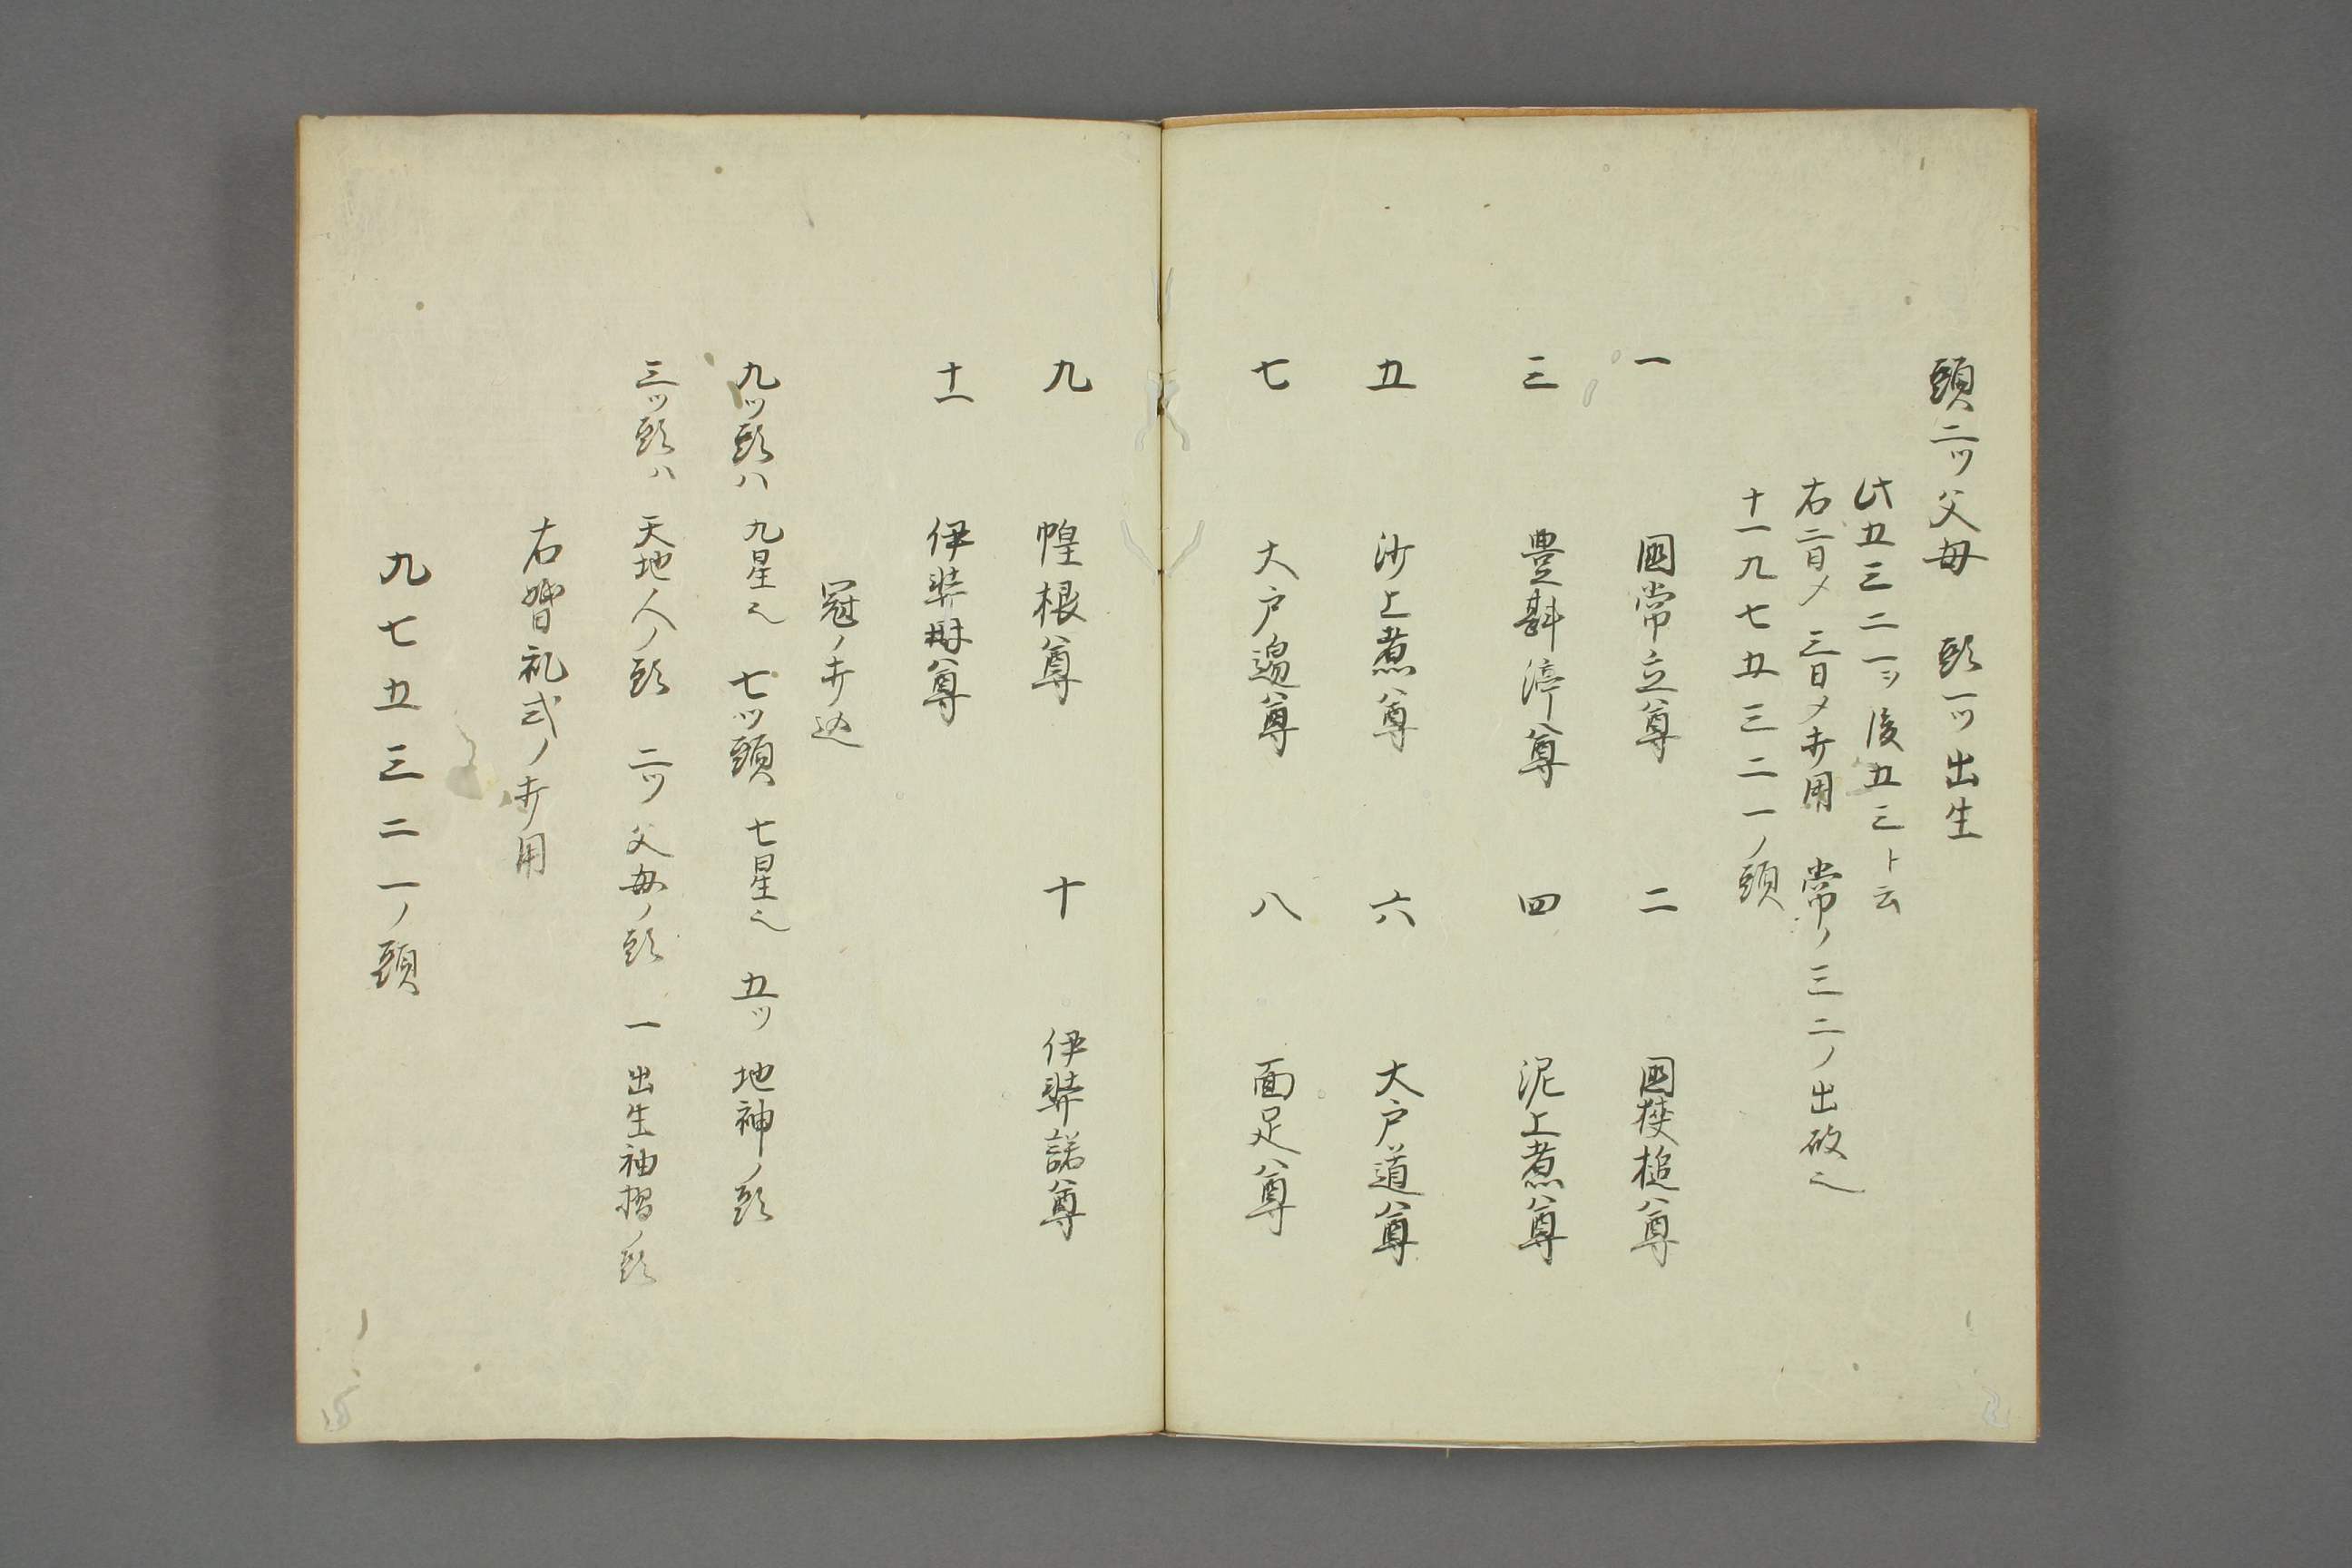 頭二ツ父母　頭一ツ出生
此五三二一ヲ後五三ト云
右二日メ三日メ才用　常ノ三二ノ出破之
十一九七五三二一ノ頭
一　國常立尊　二　國狭槌尊
三　豊斟渟尊　四　泥上煮尊
五　沙上煮尊　六　大戸道尊
七　大戸邊尊　八　面足尊
九　惶根尊　十　伊弉諾尊
十一　伊弉冊尊
冠ノ才込
九ツ頭ハ九星之　七ツ頭七星之　五ツ地神ノ頭
三ツ頭ハ天地人ノ頭　二ツ父母ノ頭　一出生袖摺ノ頭
右婚礼式ノ才用
九七五三二一ノ頭